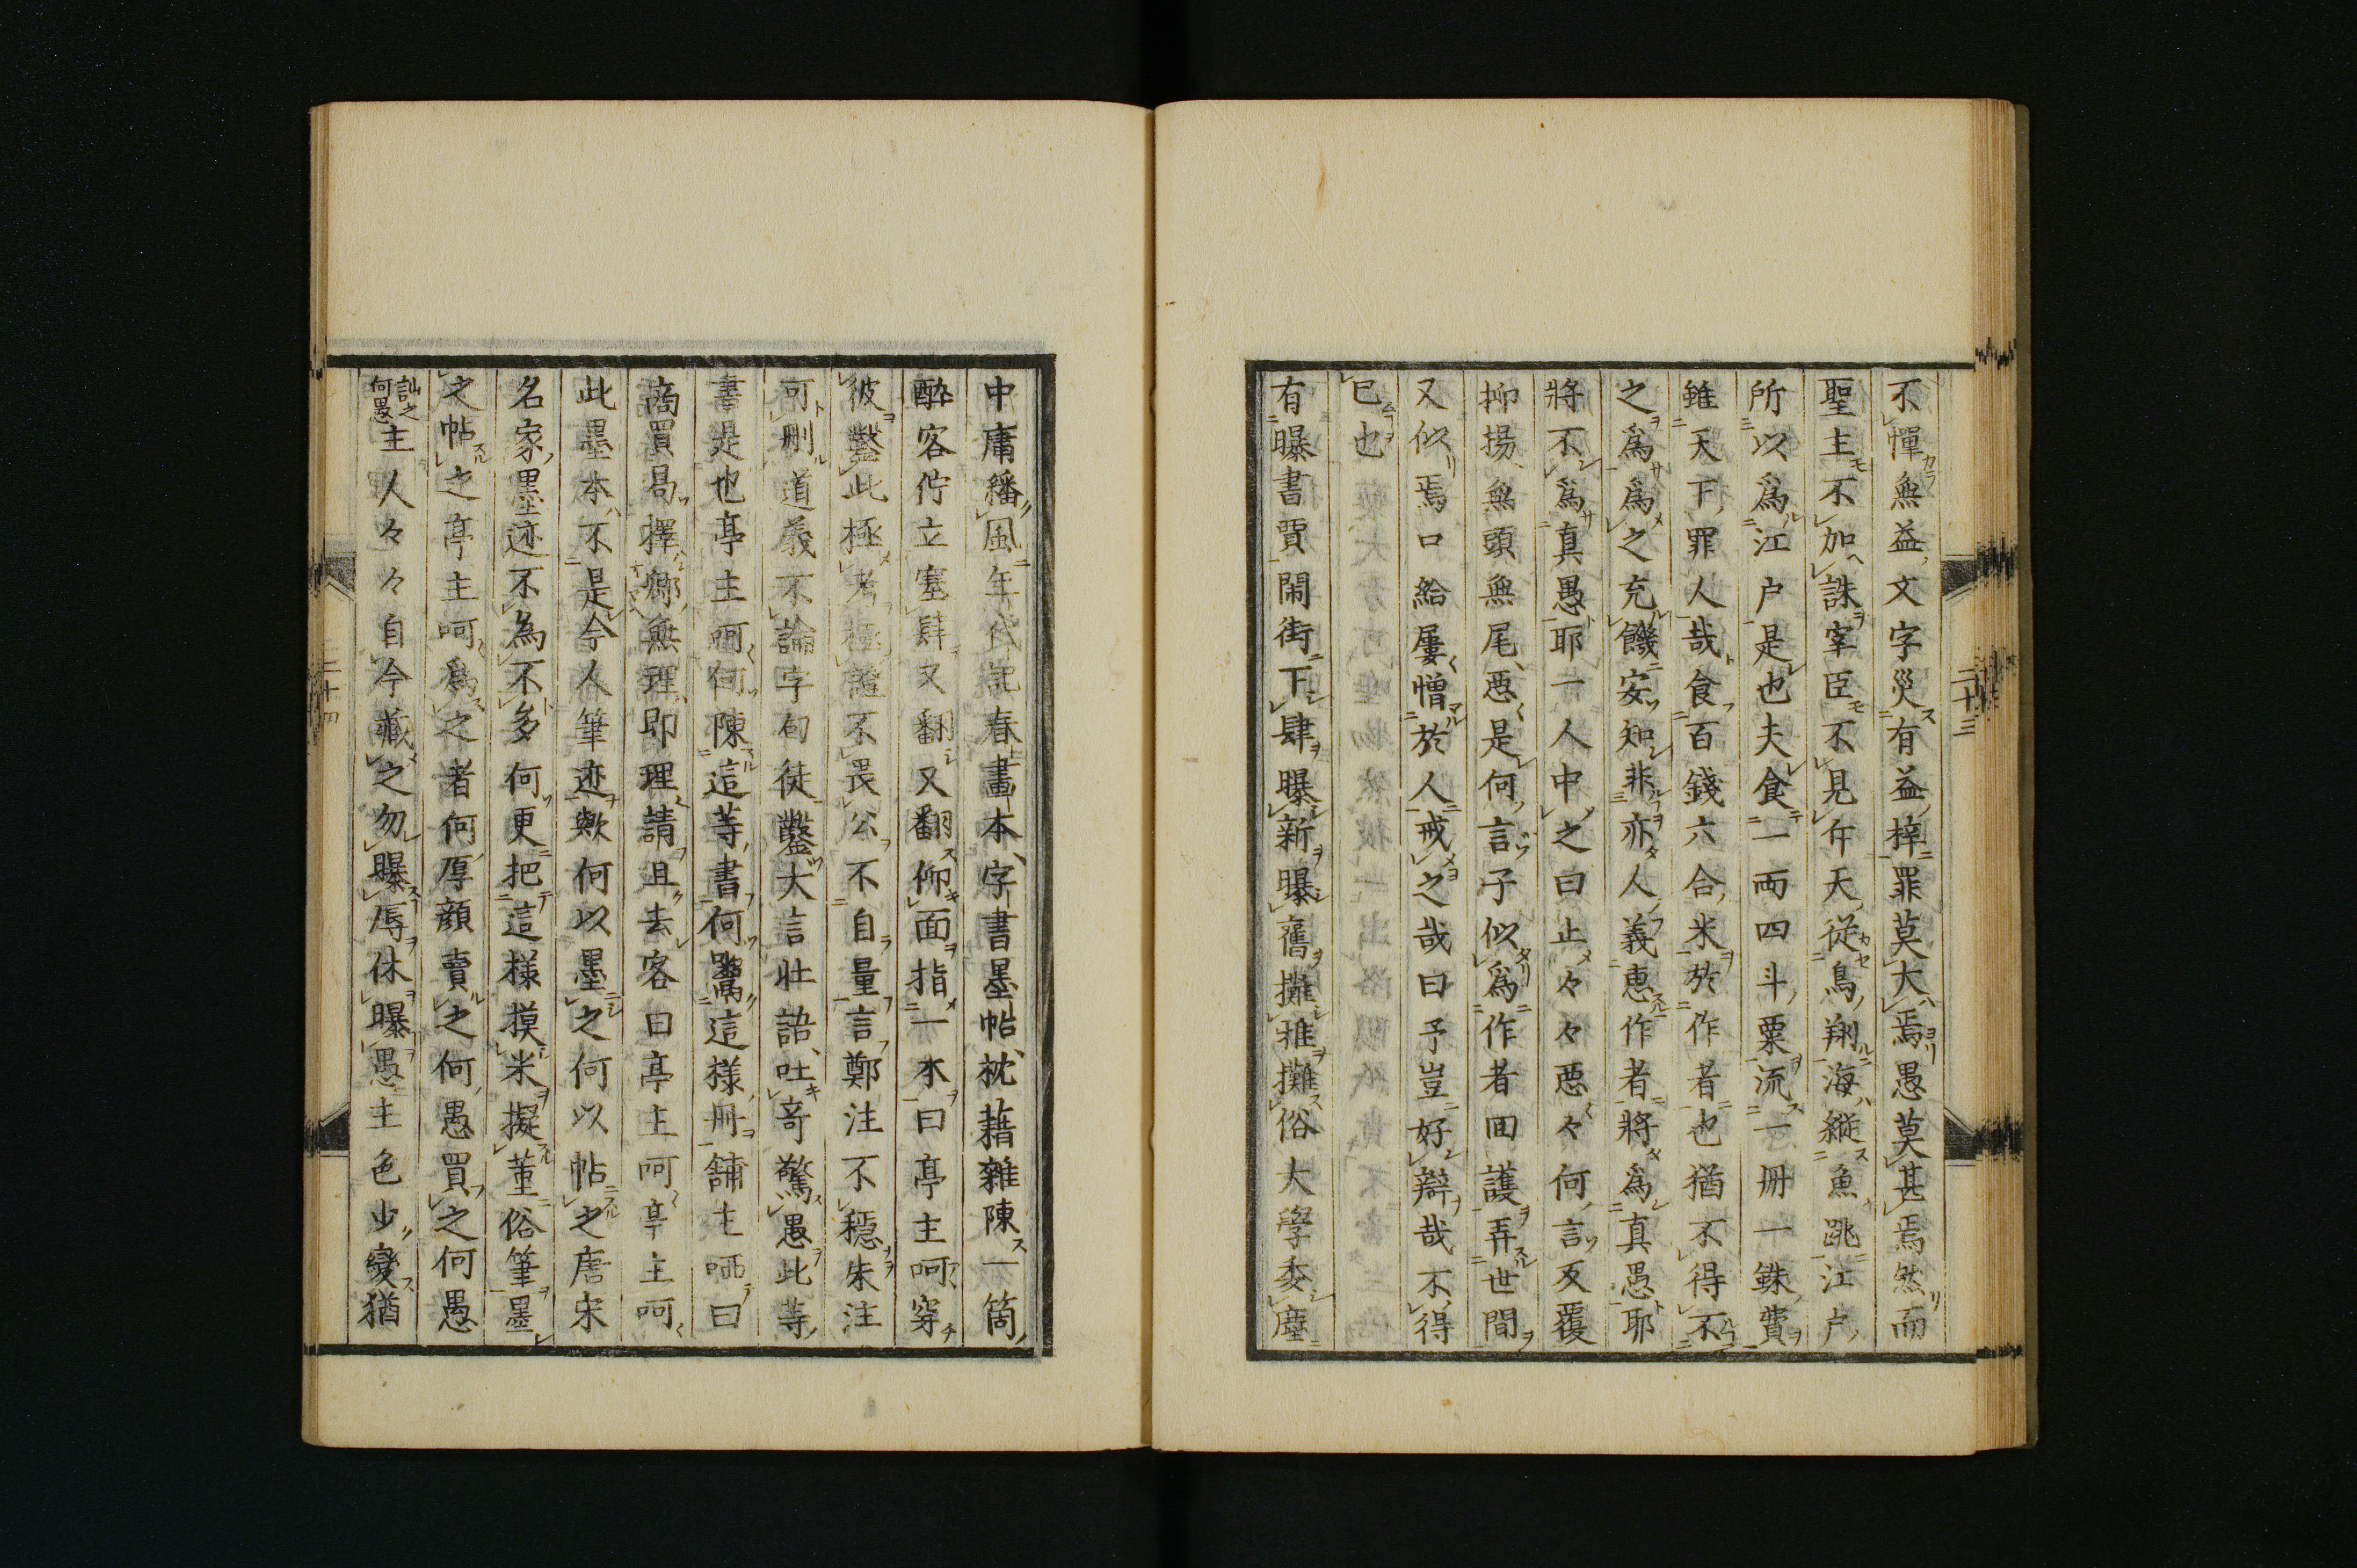 不憚無益文字災有益梓罪莫大焉愚莫甚焉然而
聖主不加誅宰臣不見仵天從鳥翔海縱魚跳江戶
所以爲江戶是也夫食一両四斗粟流一冊一銖費
雖天下罪人哉食百錢六合米於作者也猶不得不
之爲爲之充饑安知非亦人義恵作者將爲真愚耶
將不爲真愚耶一人中之曰止々々悪々何言反覆
抑揚無頭無尾悪是何言子似爲作者回護弄世間
又似焉口給屢憎於人戒之哉曰予豈好辯哉不得
已也
有曝書賈閙街下肆曝新曝舊攤雅攤俗大學委塵
二十三
中庸繙風年代記春畫本字書墨帖枕藉雜陳一箇
酔客佇立塞肆又翻又翻仰面指一本曰亭主呵穿
彼鑿此極考極證不畏公不自量言鄭注不穏朱注
可刪道義不論字句徒鑿大言壯語吐竒驚愚此等
書是也亭主呵何陳這等書何鬻這樣冊舗主哂曰
商買易擇郷無理即理請且去客曰亭主呵亭主呵
此墨本不是今人筆迹歟何以墨之何以帖之唐宋
名家墨迹不為不多何更把這樣摸米擬董俗筆墨
之帖之亭主呵爲之者何厚顔賣之何愚買之何愚
訕之何愚主人々々自今藏之勿曝辱休曝愚主色少變猶
二十四